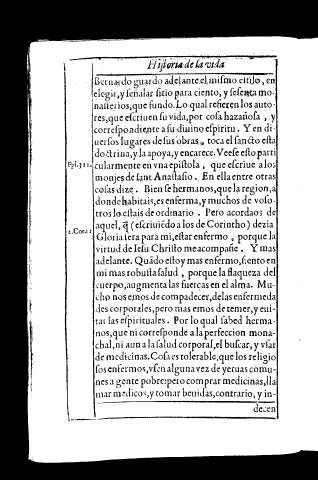 Historia de la vida
Bernardo guardo adelante el mismo estilo, en
elegir, y señalar sitio para ciento, y sesenta mo-
nasterios, que fundo. Lo qual refieren los auto-
res, que escriuen su vida, por cosa hazañosa, y
correspondiente a su diuino espiritu. Y en di-
uersos lugares de sus obras, toca el sancto esta
doctrina, y la apoya, y encarece. Veese esto parti
Epi. 321. cularmente en vna epistola, que escriue a los
monjes de sant Anastasio. En ella entre otras
cosas dize. Bien se hermanos, que la region, a
donde habitais, es enferma, y muchos de voso-
tros lo estais de ordinario. Pero acordaos de
2. Cor. 12 aquel, q̃ (escriuiẽdo a los de Corintho) dezia
Gloria sera para mi, estar enfermo, porque la
virtud de Iesu Christo me acompañe. Y mas
adelante. Quãdo estoy mas enfermo, siento en
mi mas robusta salud, porque la flaqueza del
cuerpo, augmenta las fuerças en el alma. Mu-
cho nos emos de compadecer, de las enfermeda
des corporales, pero mas emos de temer, y eui-
tar las espirituales. Por lo qual sabed herma-
nos, que ni corresponde a la perfeccion mona-
chal, ni aun a la salud corporal, el buscar, y vsar
de medicinas. Cosa es tolerable, que los religio
sos enfermos, vsen alguna vez de yeruas comu-
nes a gente pobre: pero comprar medicinas, lla
mar medicos, y tomar beuidas, contrario, y in-
decen